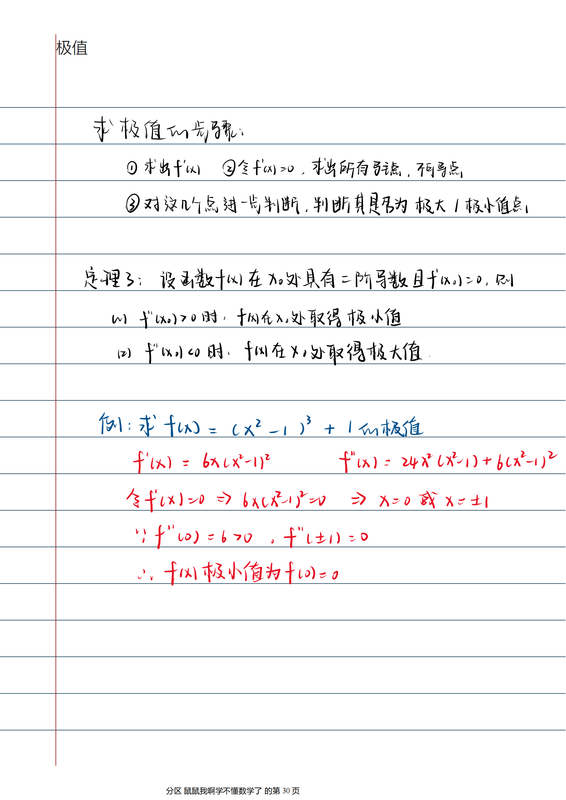 极值
求极值的步骤:
① 求出f'(x) ② 令f'(x)=0, 求出所有驻点, 不可导点
③ 对这几个点进一步判断, 判断其是否为极大/极小值点
定理3: 设函数f(x)在x₀处具有二阶导数且f'(x₀)=0, 则
(1) f''(x₀)>0时, f(x)在x₀处取得极小值
(2) f''(x₀)<0时, f(x)在x₀处取得极大值.
例1: 求 f(x) = (x²-1)³ + 1 的极值
f'(x) = 6x(x²-1)² f''(x) = 24x²(x²-1)+6(x²-1)²
令f'(x)=0 ⇒ 6x(x²-1)²=0 ⇒ x=0 或 x=±1
∵ f''(0)=6>0, f''(±1)=0
∴ f(x)极小值为f(0)=0
分区 鼠鼠我啊学不懂数学了 的第 30 页